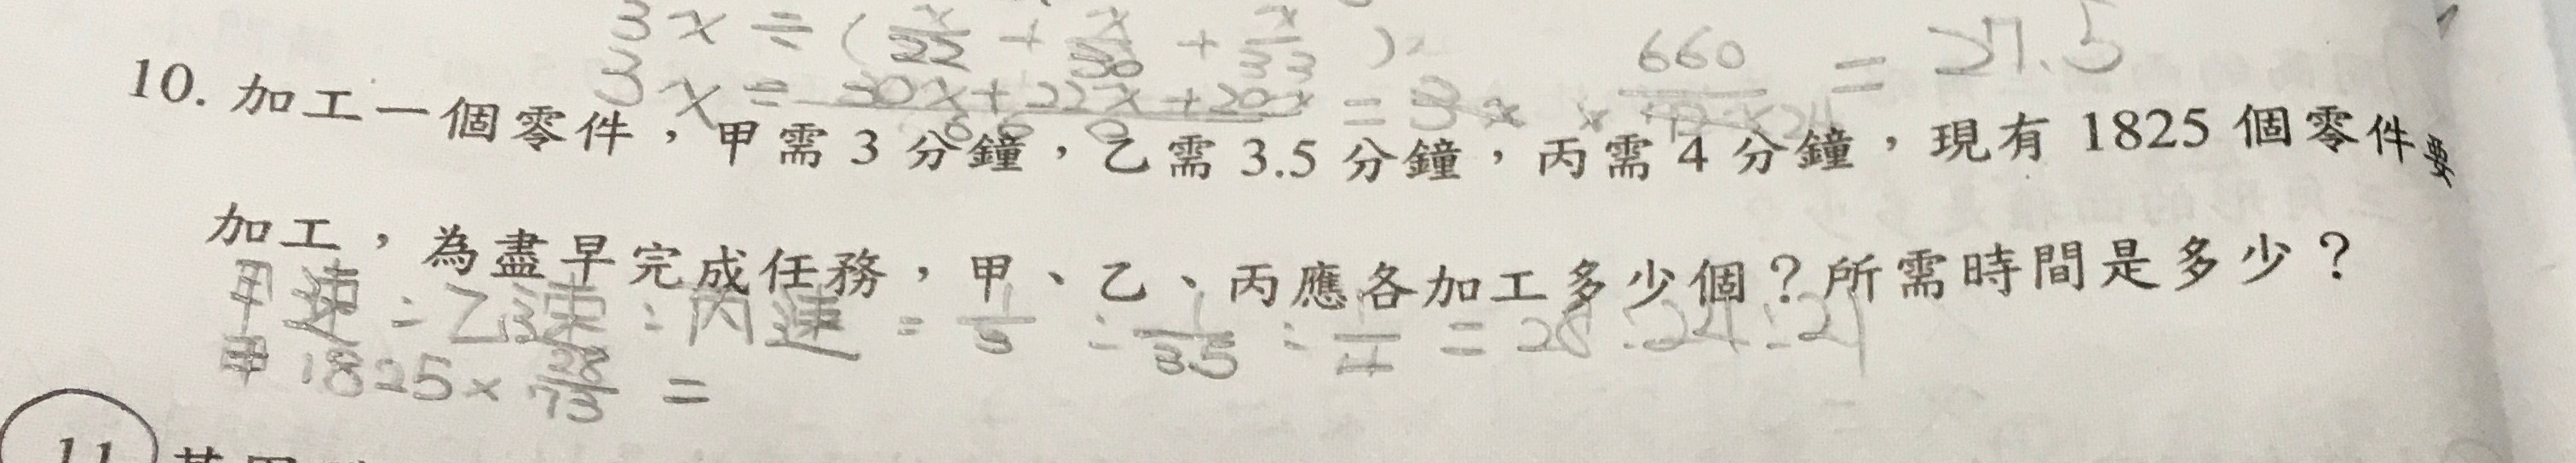 3x ÷ ( x/22 + x/30 + x/33 )
3x ÷ 30x+22x+20x/660 = 3x × 660/72x = 27.5
10. 加工一個零件,甲需 3 分鐘,乙需 3.5 分鐘,丙需 4 分鐘,現有 1825 個零件要
加工,為盡早完成任務,甲、乙、丙應各加工多少個?所需時間是多少?
甲速:乙速:丙速 = 1/3 : 1/3.5 : 1/4 = 28:24:21
甲 1825 × 28/73 =
11